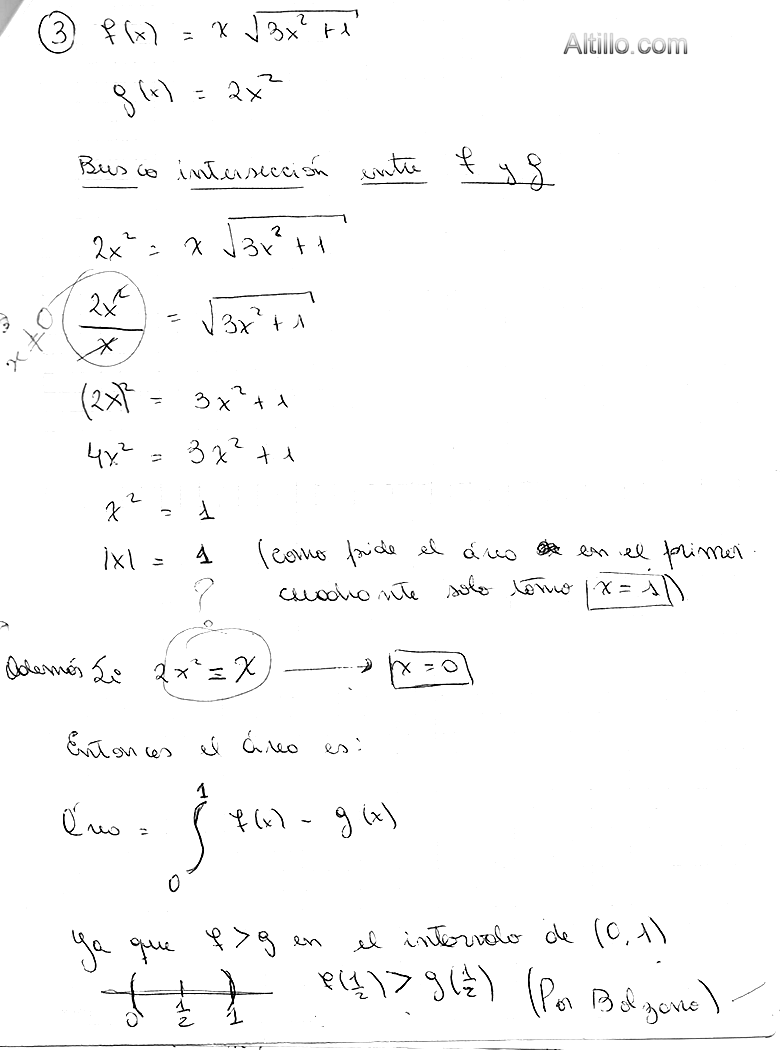 ③ f(x) = x √(3x² + 1)
Altillo.com
g(x) = 2x²
Busco intersección entre f y g
2x² = x √(3x² + 1)
x ≠ 0
2x²/x = √(3x² + 1)
(2x)² = 3x² + 1
4x² = 3x² + 1
x² = 1
|x| = 1 (como pide el área en el primer
cuadrante solo tomo x = 1)
?
Además Si 2x² = x → x = 0
Entonces el área es:
Área = ∫₀¹ f(x) - g(x)
Ya que f > g en el intervalo de (0, 1)
0 1/2 1 f(1/2) > g(1/2) (Por Bolzano)